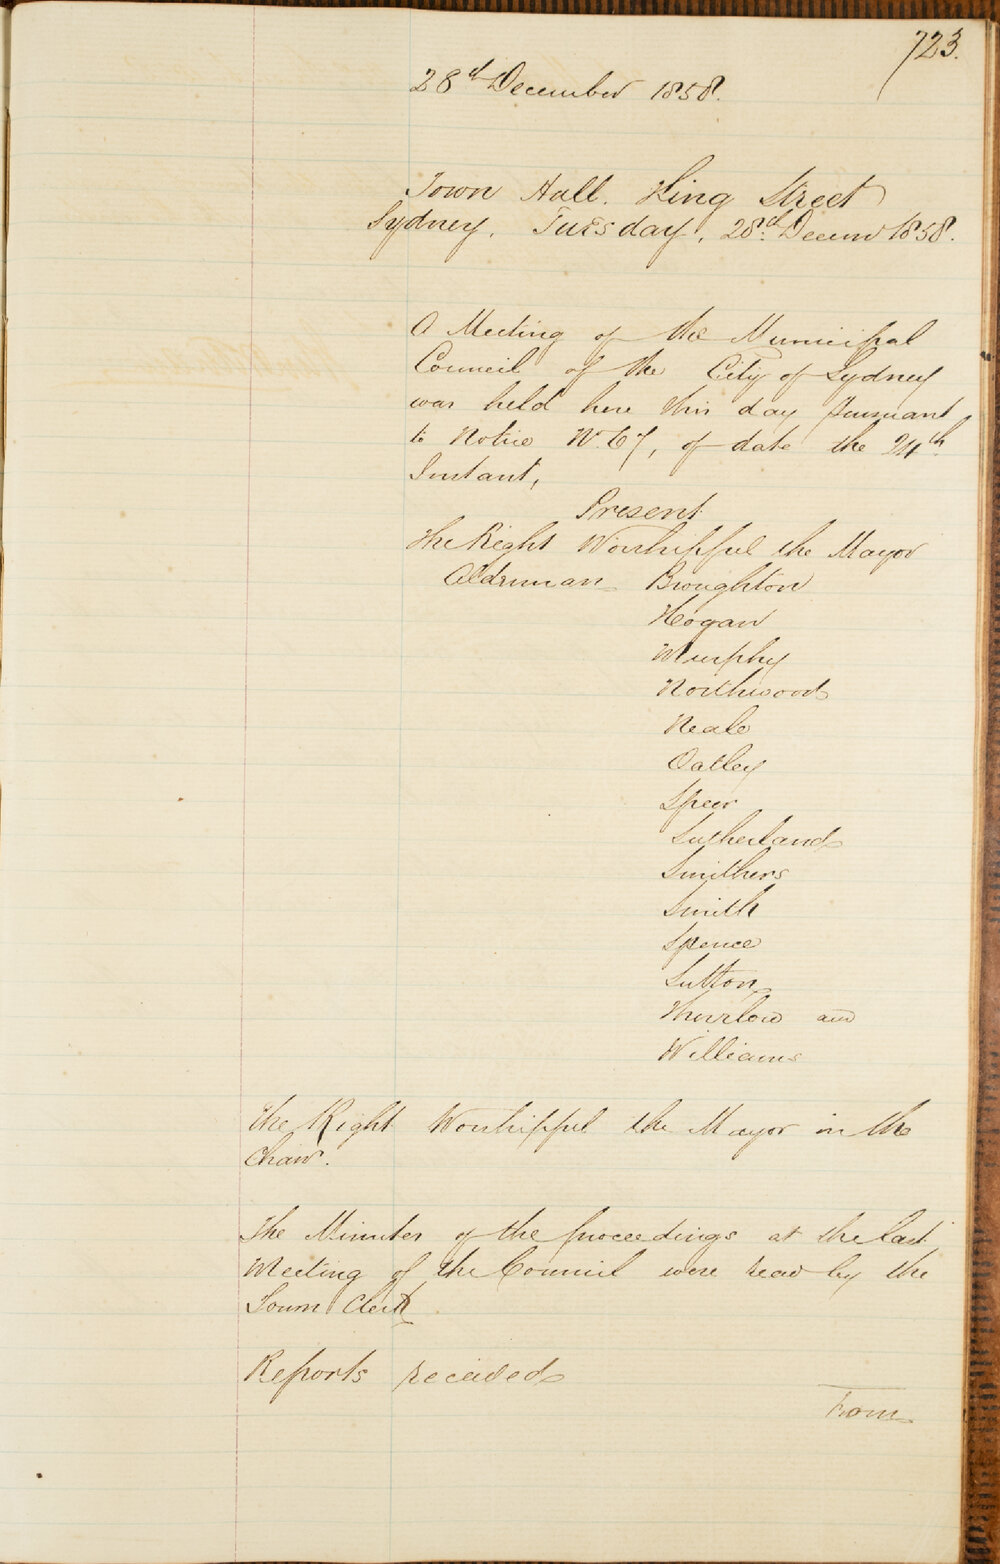 723.
28th December 1858.
Town Hall. King Street
Sydney. Tuesday. 28th Decem 1858.
A Meeting of the Municipal
Council of the City of Sydney
was held here this day pursuant
to Notice No 67, of date the 24th
Instant,
Present
The Right Worshipful the Mayor
Alderman Broughton
Hogan
Murphy
Northwood
Neale
Oatley
Speer
Sutherland
Smithers
Smith
Spence
Sutton
Thurlow and
Williams
The Right Worshipful the Mayor in the
Chair.
The Minutes of the proceedings at the last
Meeting of the Council were read by the
Town Clerk
Reports received
From